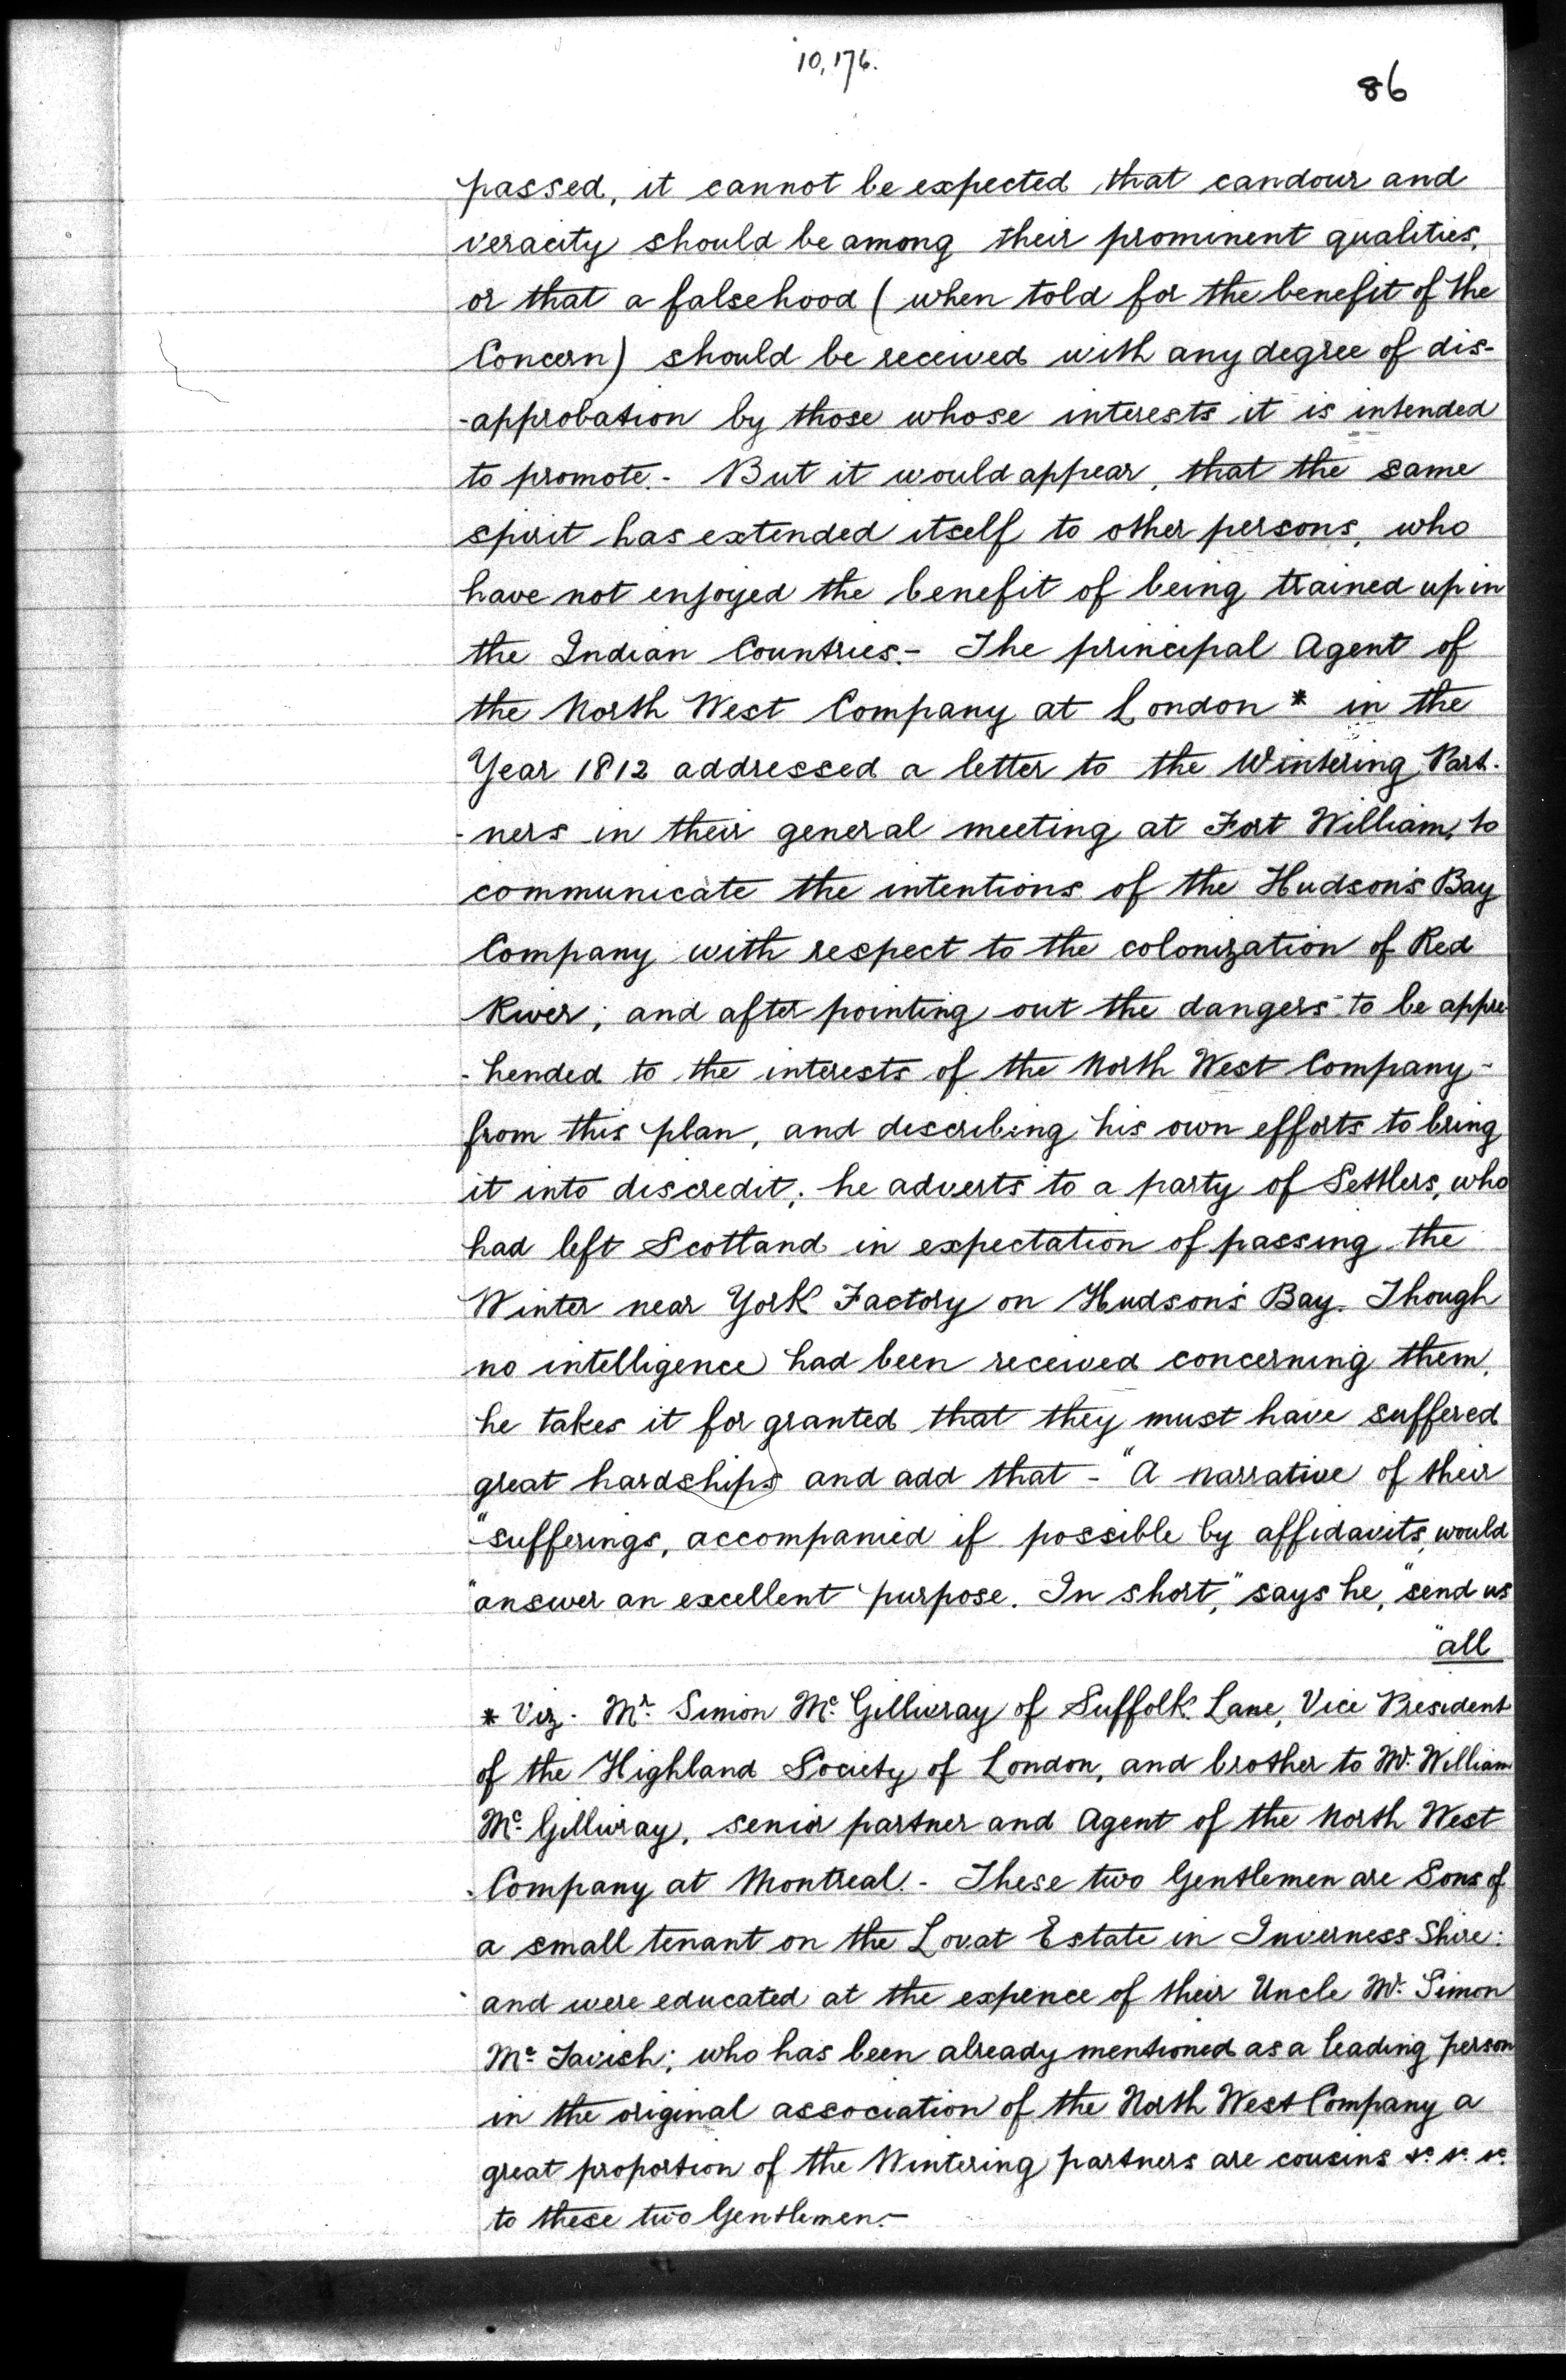 10,176.
86
passed, it cannot be expected that candour and
veracity should be among their prominent qualities,
or that a falsehood (when told for the benefit of the
Concern) should be received with any degree of dis-
-approbation by those whose interests it is intended
to promote.- But it would appear, that the same
spirit has extended itself to other persons, who
have not enjoyed the benefit of being trained up in
the Indian Countries.- The principal Agent of
the North West Company at London * in the
Year 1812 addressed a letter to the Wintering Part-
-ners in their general meeting at Fort William, to
communicate the intentions of the Hudson's Bay
Company with respect to the colonization of Red
River; and after pointing out the dangers to be appre-
-hended to the interests of the North West Company-
from this plan, and describing his own efforts to bring
it into discredit; he adverts to a party of Settlers, who
had left Scotland in expectation of passing the
Winter near York Factory on Hudson's Bay. Though
no intelligence had been received concerning them,
he takes it for granted that they must have suffered
great hardships and add that - "A narrative of their
"sufferings, accompanied if possible by affidavits, would
"answer an excellent purpose. In short," says he, "send us
"all
* Viz. Mr. Simon Mc. Gillivray of Suffolk Lane, Vice President
of the Highland Society of London, and brother to Mr. William
Mc. Gillivray, senior partner and Agent of the North West
Company at Montreal.- These two Gentlemen are Sons of
a small tenant on the Lovat Estate in Inverness Shire:
and were educated at the expence of their Uncle Mr. Simon
Mc. Tavish; who has been already mentioned as a leading person
in the original association of the North West Company a
great proportion of the Wintering partners are cousins &c. &c. &c.
to these two Gentlemen.-